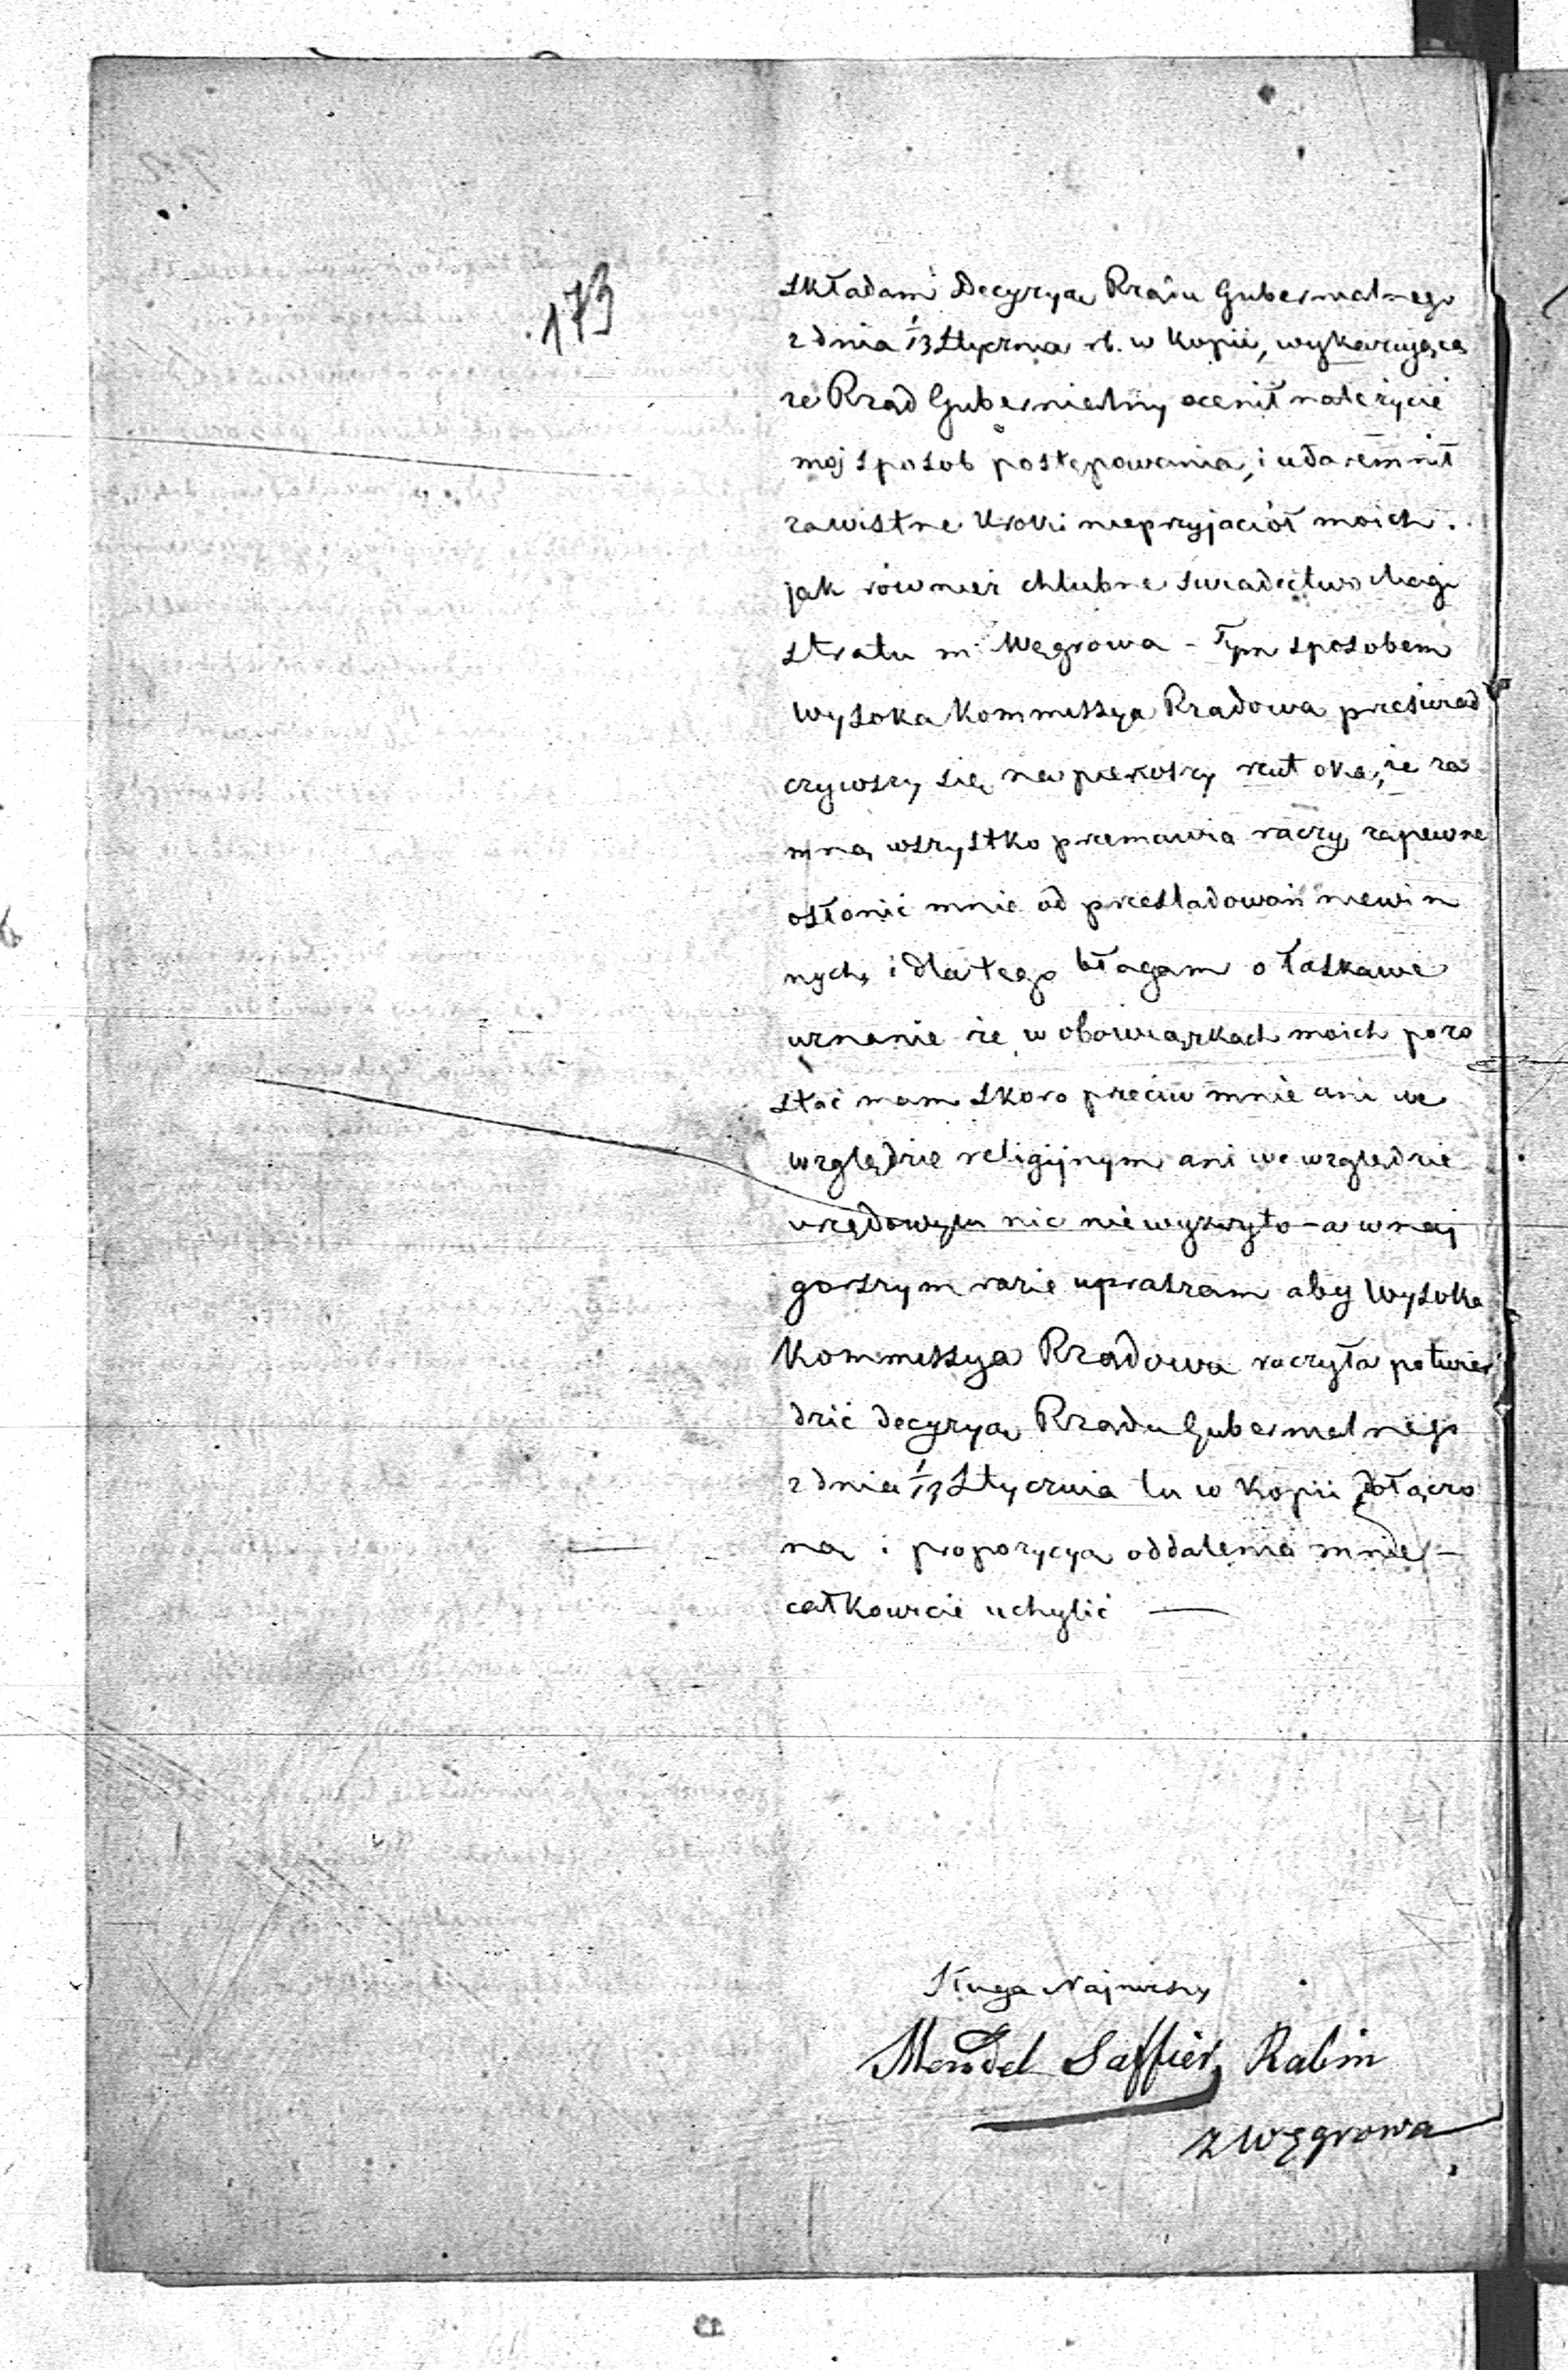 173
składam Decyzyą Rządu Gubernialnego
z dnia 1/13 Stycznia rb. w kopii, wykazującą
że Rząd Gubernialny ocenił należycie
moj sposob postępowania, i udaremnił
zawistne kroki nieprzyjaciół moich.
jak również chlubne swiadectwo Magi
stratu m. Węgrowa - Tym sposobem
Wysoka Kommissya Rządowa przeswiad
czywszy się na pierwszy rzut oka, że za
mną wszystko przemawia raczy zapewne
osłonić mnie od prześladowań niewin
nych, i dla tego błagam o łaskawe
uznanie że w obowiązkach moich pozo
stać mam skoro przeciw mnie ani we
względzie religijnym ani we względzie
urzędowym nic nie wykryto - a w naj
gorszym razie upraszam aby Wysoka
Kommissya Rządowa raczyła potwier
dzić decyzyą Rządu Gubernialnego
z dnia 1/13 Stycznia tu w kopii dołączo
ną i propozycyą oddalenia mnie -
całkowicie uchylić —
Sługa Najniższy
Mendel Saffier, Rabin
z Węgrowa